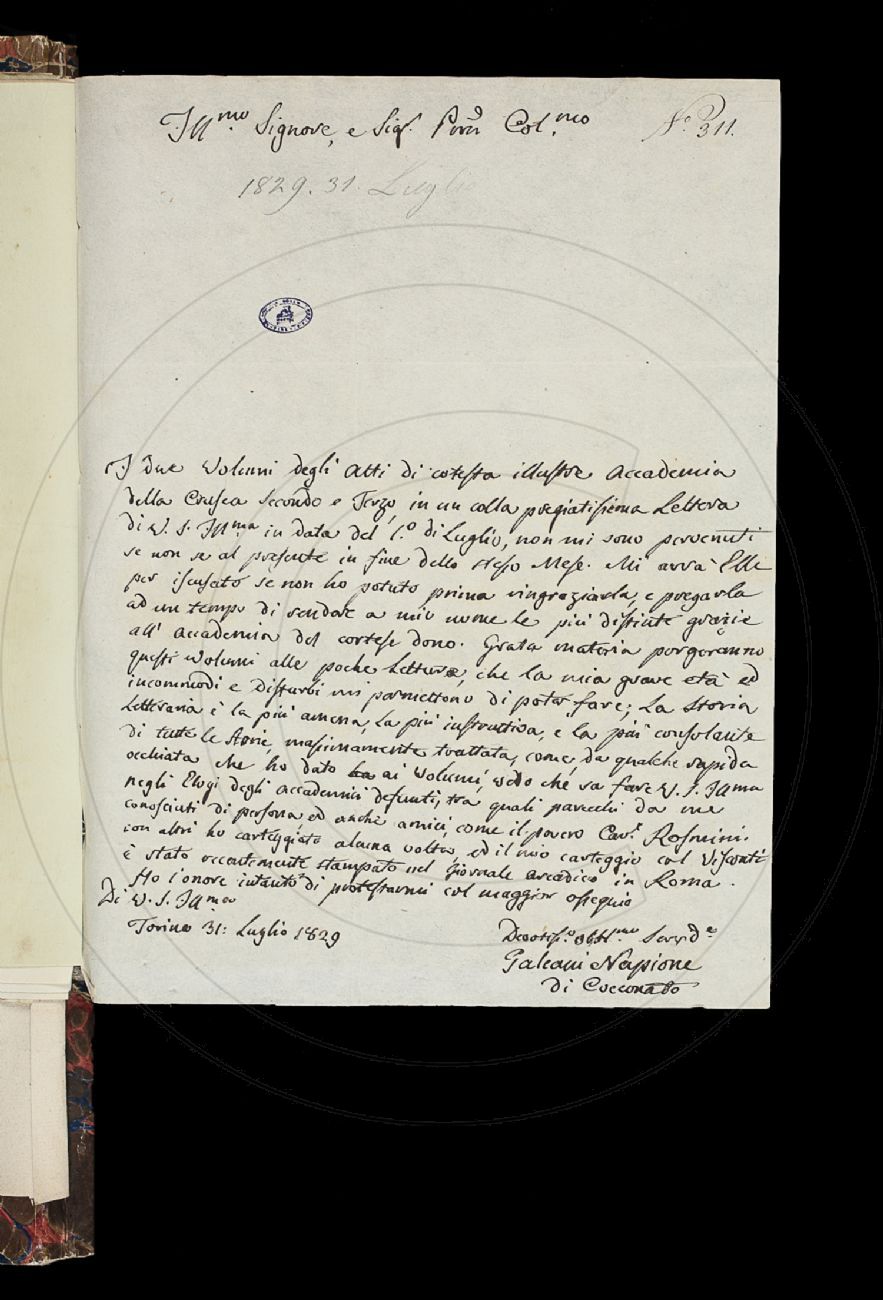 Ill.mo Signore, e Sig.r Pron Col.mo
N.o 311.
1829. 31. Luglio
I due Volumi degli Atti di cotesta illustre Accademia
della Crusca Secondo e Terzo, in un colla pregiatissima Lettera
di V. S. Ill.ma in data del 1.o di Luglio, non mi sono pervenuti
se non se al presente in fine dello stesso Mese. Mi avrà Ella
per iscusato se non ho potuto prima ringraziarla, e pregarla
ad un tempo di rendere a mio nome le più distinte grazie
all' Accademia del cortese dono. Grata materia porgeranno
questi Volumi alle poche Letture, che la mia grave età ed
incommodi e disturbi mi permettono di poter fare; La Storia
Letteraria è la più amena, la più instruttiva, e la più consolante
di tutte le Storie, massimamente trattata, come, da qualche rapida
occhiata che ho dato ai Volumi, vedo che sa fare V. S. Ill.ma
negli Elogi degli Accademici defunti, tra quali parecchi da me
conosciuti di persona, ed anche amici, come il povero Cav.r Rosmini.
con altri ho carteggiato alcuna volta, ed il mio carteggio col Visconti
è stato recentemente stampato nel Giornale arcadico in Roma.
Ho l'onore intanto di protestarmi col maggior ossequio
Di V. S. Ill.ma
Torino 31: Luglio 1829
Devotis.o obbl.mo Servid.e
Galeani Napione
di Cocconato